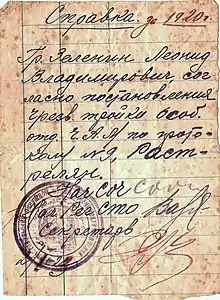 Справка. до 1920г.
Гр. Зеленин Леонид
Владимирович, сог
ласно постановления
чрезв. тройки особ.
отд. по прото
колу №9, Раст
релян.
Нач СОЧ СОЧ
Секретарь